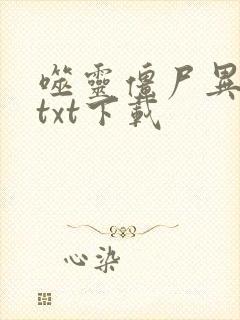 噬靈僵尸異
txt下載
心染